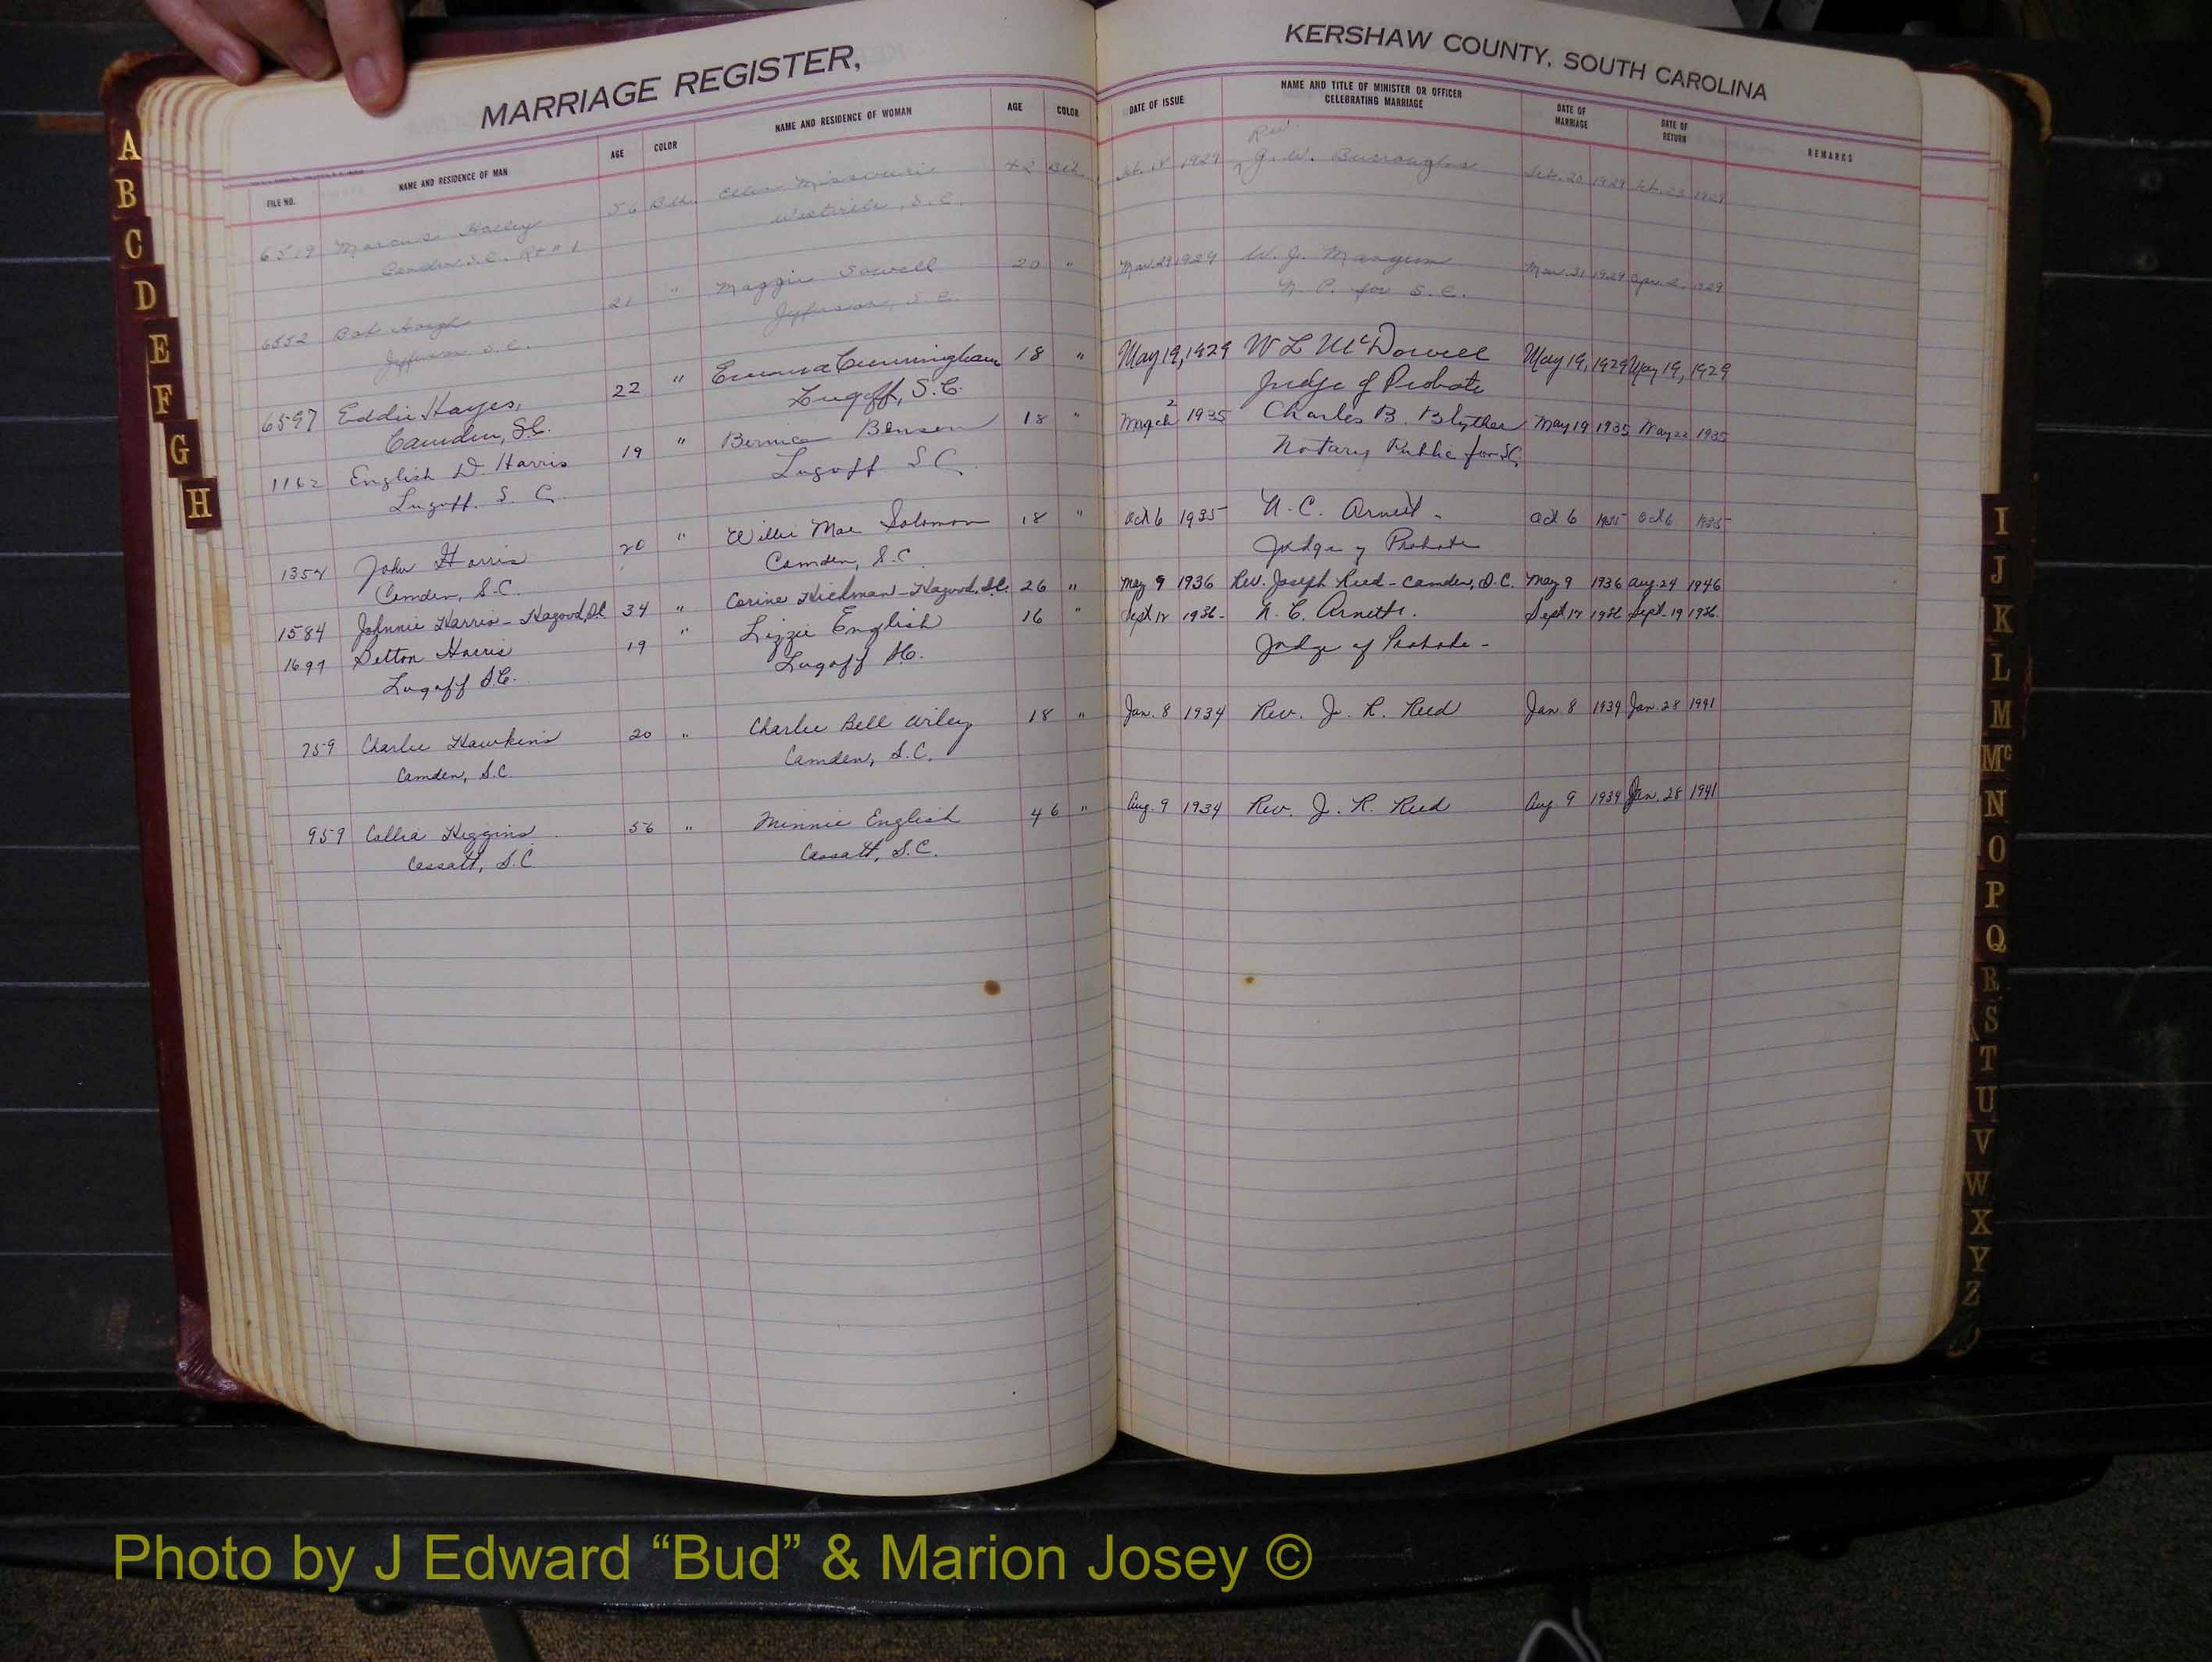 MARRIAGE REGISTER,
FILE NO. NAME AND RESIDENCE OF MAN AGE COLOR NAME AND RESIDENCE OF WOMAN AGE COLOR
6519 Marcus Hailey 56 Blk. Missouri 42 Blk
Camden S.C. Rt # 1 Westville, S.C.
6552 Bob Hough 21 " Maggie Sowell 20 "
Jefferson S.C. Jefferson, S.C.
6597 Eddie Hayes, 22 " Emma Cunningham 18 "
Camden, S.C. Lugoff, S.C.
1162 English D. Harris 19 " Bernice Benson 18 "
Lugoff. S. C. Lugoff S.C.
1354 John Harris 20 " Willie Mae Solomon 18 "
Camden, S.C. Camden, S.C
1584 Johnnie Harris - Hagood, SC 34 " Corine Hickman - Hagood, S.C. 26 "
1697 Harris 19 " Lizzie English 16 "
Lugoff SC. Lugoff SC.
759 Charlie Hawkins 20 " Charlie Bell Wiley 18 "
Camden, S.C. Camden, S.C.
959 Callia Higgins 56 " Minnie English 46 "
Cassatt, S.C Cassatt, S.C.
KERSHAW COUNTY, SOUTH CAROLINA
DATE OF ISSUE NAME AND TITLE OF MINISTER OR OFFICER CELEBRATING MARRIAGE DATE OF MARRIAGE DATE OF RETURN REMARKS
Rev.
Feb. 18 1929 G. W. Burroughs Feb. 20 1929 Feb. 23 1929
Mar. 29 1929 W. J. Mangum Mar. 31 1929 Apr. 2 1929
N. P. for S.C.
May 19, 1929 W L McDowell May 19, 1929 May 19, 1929
Judge of Probate
March 2 1935 Charles B. Blyther May 19 1935 May 22 1935
Notary Public for SC
Oct 6 1935 N. C. Arnett - Oct 6 1935 Oct 6 1935
Judge of Probate
May 9 1936 Rev. Joseph Reed - Camden, S.C. May 9 1936 Aug. 24 1946
Sept 17 1936 - N. C. Arnett. Sept 17 1936 Sept. 19 1936.
Judge of Probate -
Jan. 8 1934 Rev. J. R. Reed Jan. 8 1934 Jan. 28 1941
Aug. 9 1934 Rev. J. R. Reed Aug. 9 1934 Jan. 28 1941
A
B
C
D
E
F
G
H
I
J
K
L
M
Mc
N
O
P
Q
R
S
T
U
V
W
X
Y
Z
Photo by J Edward “Bud” & Marion Josey ©